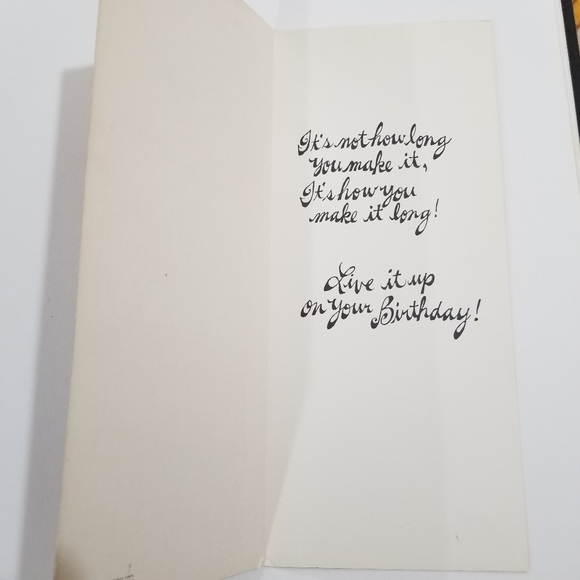 It's not how long
you make it,
It's how you
make it long!
Live it up
on your Birthday!